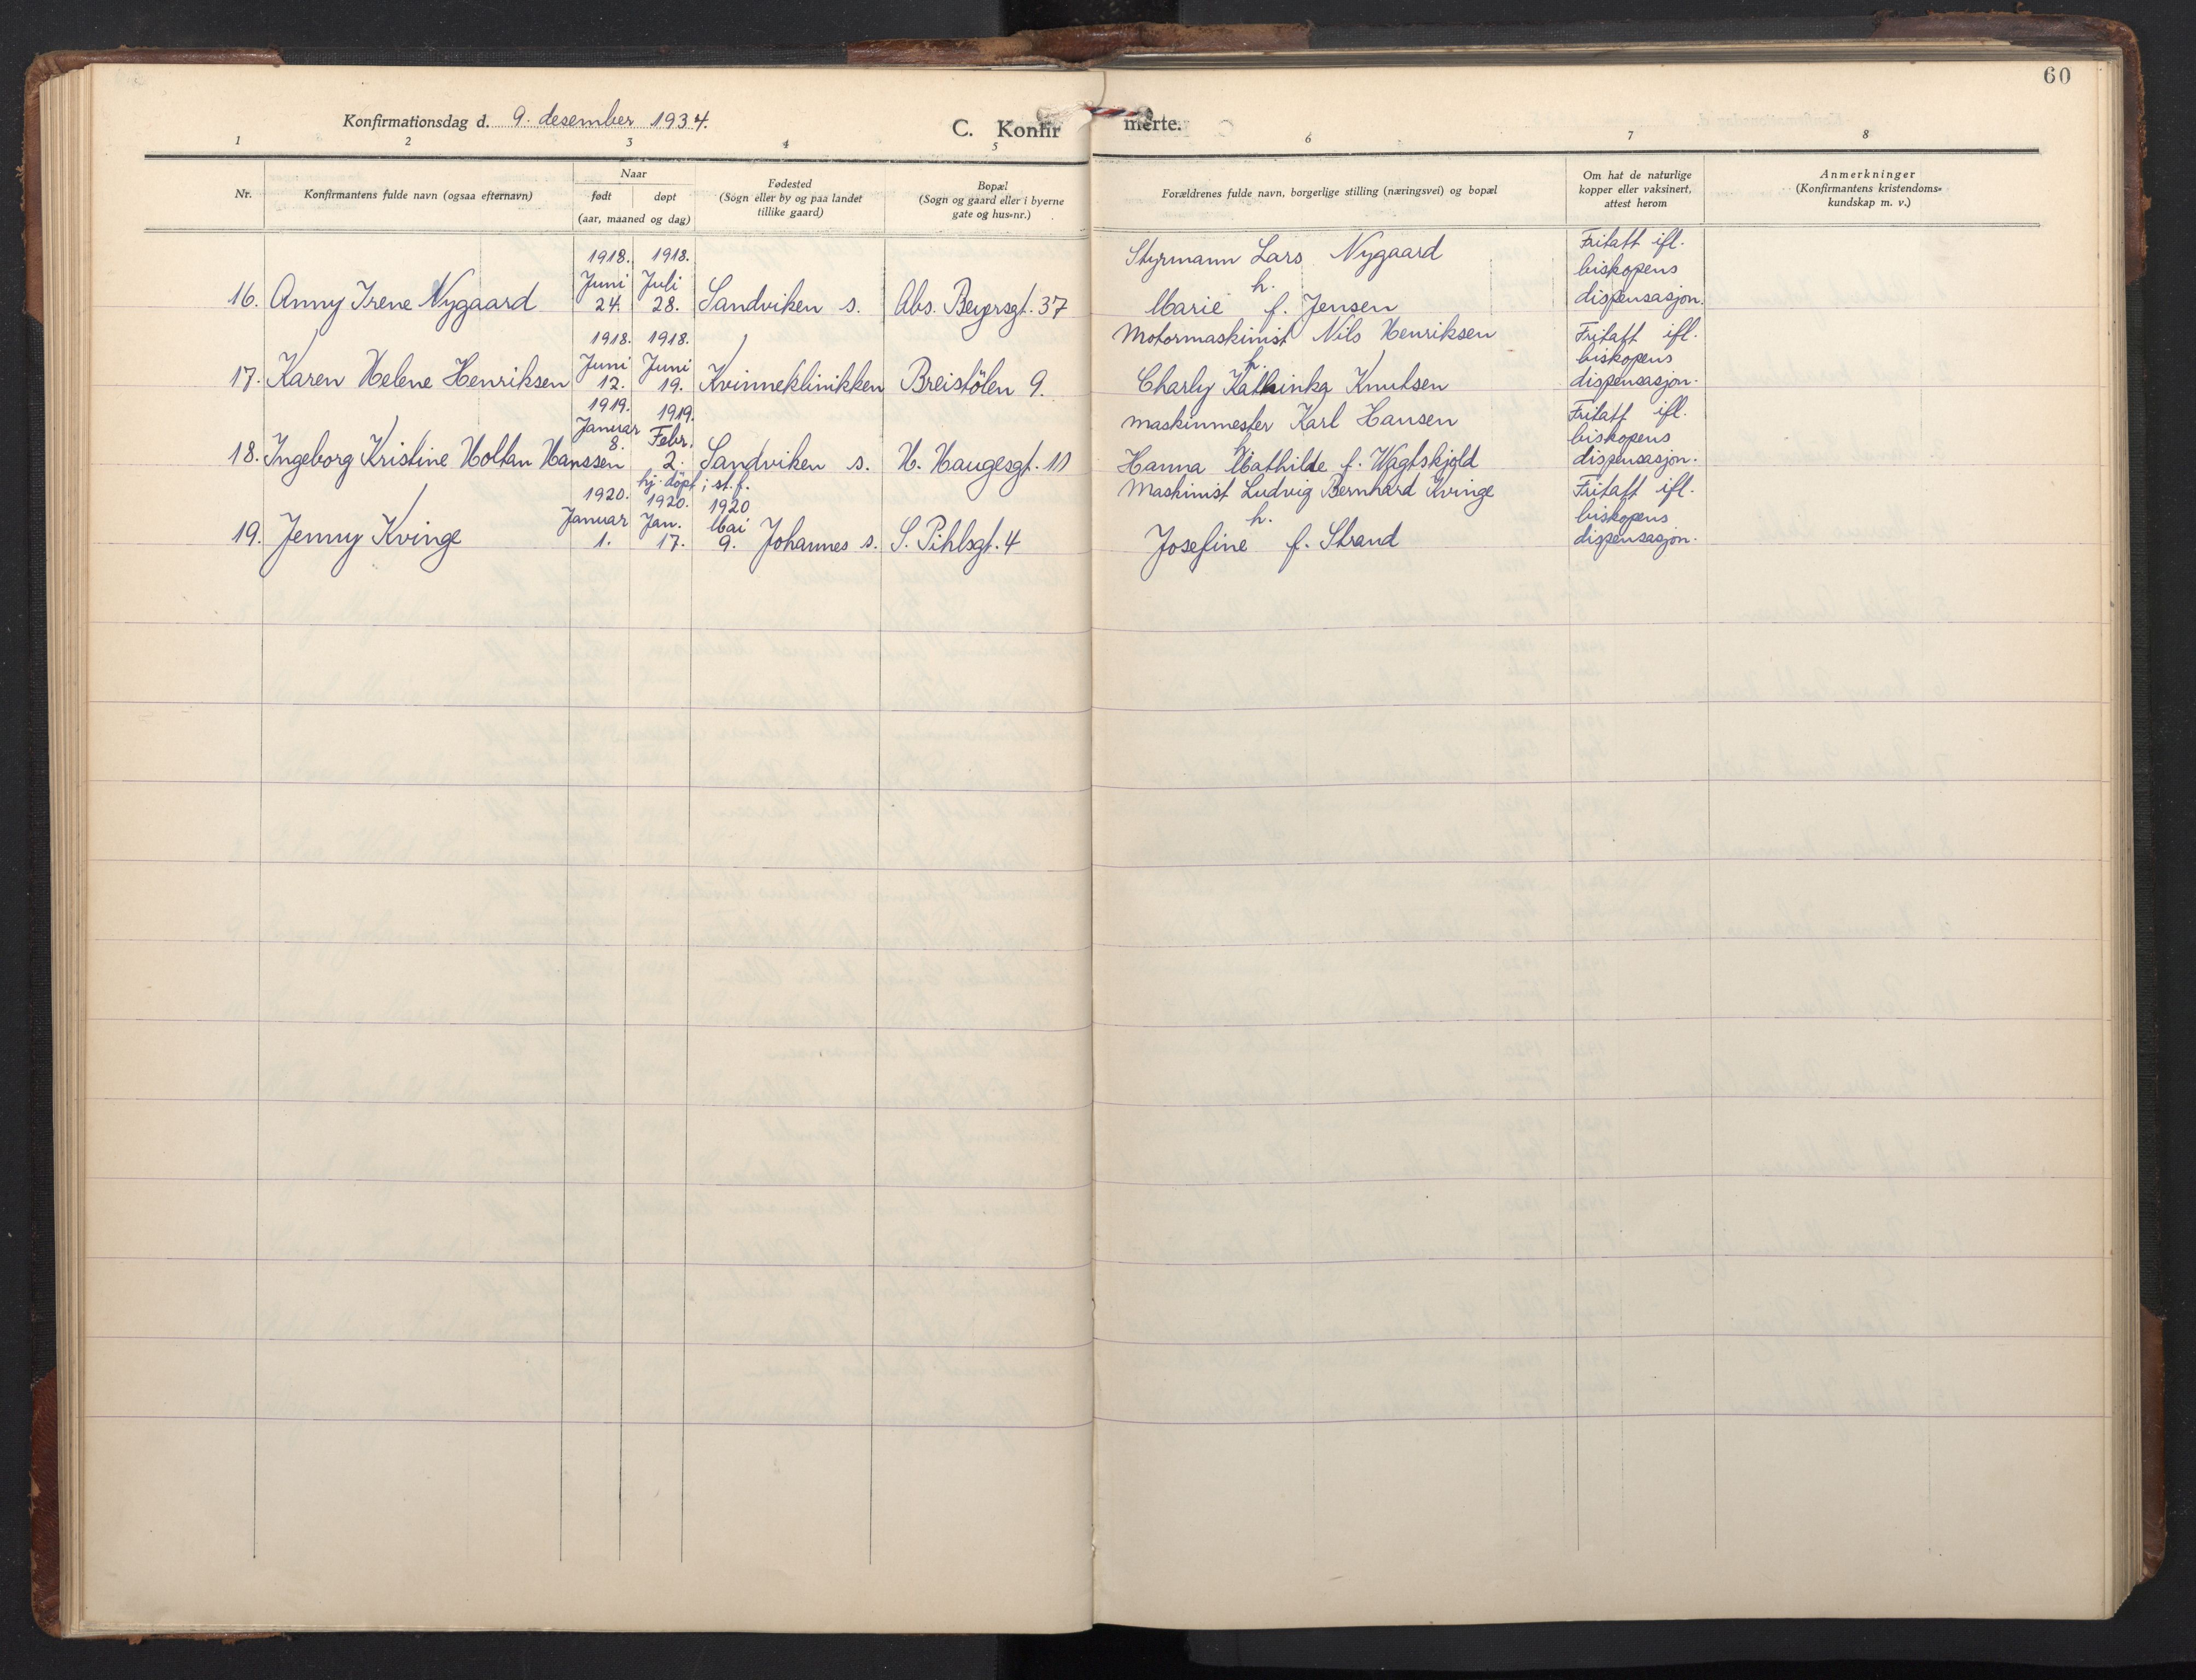 60
Konfirmationsdag d. 9. desember 1934.
C. Konfirmerte.
1 2 3 4 5 6 7 8
Nr.
Konfirmantens fulde navn (ogsaa efternavn)
Naar
født døpt
(aar, maaned og dag)
Fødested
(Sogn eller by og paa landet
tillike gaard)
Bopæl
(Sogn og gaard eller i byerne
gate og hus-nr.)
Forældrenes fulde navn, borgerlige stilling (næringsvei) og bopæl
Om hat de naturlige
kopper eller vaksinert,
attest herom
Anmerkninger
(Konfirmantens kristendoms-
kundskap m. v.)
1918. 1918. Styrmann Lars Nygaard Fritatt ifl.
Juni Juli h. biskopens
16. Anny Irene Nygaard 24. 28. Sandviken s. Abs. Beyersgt. 37 Marie f. Jensen dispensasjon.
1918. 1918. Motormaskinist Nils Henriksen Fritatt ifl.
Juni Juni h. biskopens
17. Karen Helene Henriksen 12. 19. Kvinneklinikken Breistölen 9. Charly Kathinka Knutsen dispensasjon.
1919. 1919. Maskinmester Karl Hansen Fritatt ifl.
Januar Febr. h. biskopens
18. Ingeborg Kristine Holtan Hanssen 8. 2. Sandviken s. H. Haugesgt. 11 Hanna Mathilde f. Wagtskjold dispensasjon.
hj. döpt i st. f.
1920. 1920. 1920 Maskinist Ludvig Bernhard Kvinge Fritatt ifl.
Januar Jan. Mai h. biskopens
19. Jenny Kvinge 1. 17. 9. Johannes s. S. Pihlsgt. 4 Josefine f. Strand dispensasjon.